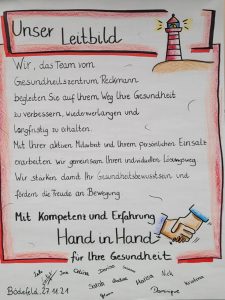 Unser Leitbild
Wir, das Team vom
Gesundheitszentrum Reckmann
begleiten Sie auf Ihrem Weg Ihre Gesundheit
zu verbessern, wiederzuerlangen und
langfristig zu erhalten.
Mit Ihrer aktiven Mitarbeit und Ihrem persönlichen Einsatz
erarbeiten wir gemeinsam Ihren individuellen Lösungsweg.
Wir stärken damit Ihr Gesundheitsbewusstsein und
fördern die Freude an Bewegung.
Mit Kompetent und Erfahrung
Hand in Hand
für Ihre Gesundheit
Ina
Sarah
Marina
Nick
Kristina
Bödefeld, 27.11.21